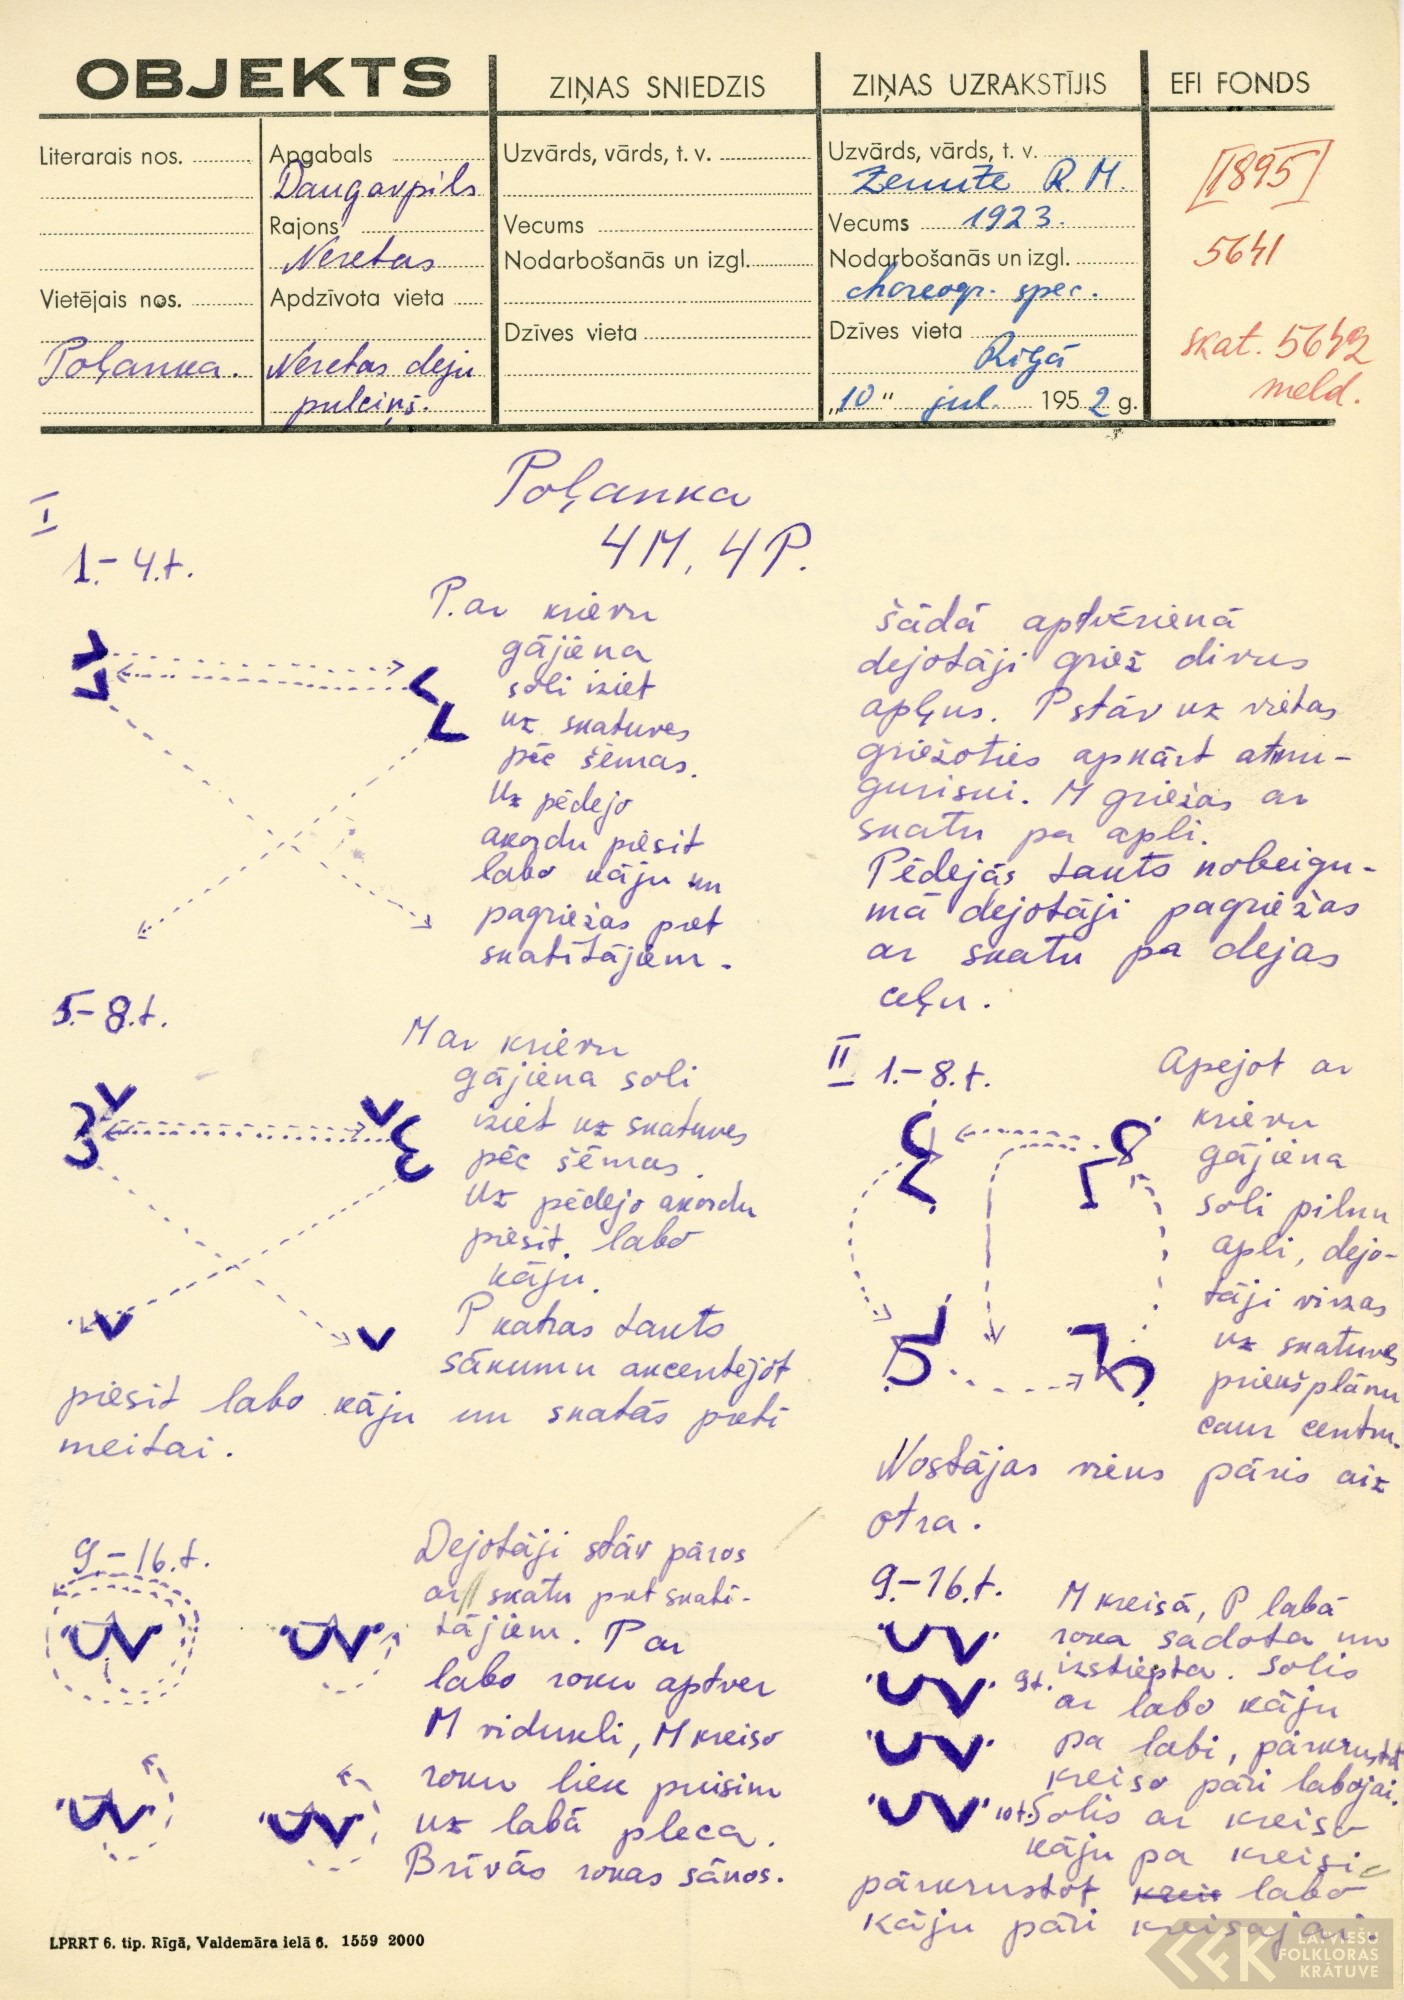 OBJEKTS
ZIŅAS SNIEDZIS
ZIŅAS UZRAKSTĪJIS
EFI FONDS
Literarais nos.
Vietējais nos.
Poļanka.
Apgabals
Daugavpils
Rajons
Neretas
Apdzīvota vieta
Neretas deju
pulciņš.
Uzvārds, vārds, t. v.
Vecums
Nodarbošanās un izgl.
Dzīves vieta
Uzvārds, vārds, t. v.
R. M.
Vecums 1923.
Nodarbošanās un izgl.
choreogr. spec.
Dzīves vieta
Rīgā
"10" jul. 1952 g.
1895
5641
skat. 5642
meld.
Poļanka
4M, 4P.
I
1.-4.t.
P. ar krievu
gājiena
soli iziet
uz skatuves
pēc šēmas.
Uz pēdejo
akordu piesit
labo kāju un
pagriežas pret
skatītājiem.
5.-8.t.
M ar krievu
gājiena soli
iziet uz skatuves
pēc šēmas.
Uz pēdejo akordu
piesit labo
kāju.
P katras takts
sākumu akcentējot
piesit labo kāju un skatās pretī
meitai.
9.-16.t.
Dejotāji stāv pāros
ar skatu pret skatī-
tājiem. P ar
labo roku aptver
M vidukli, M kreiso
roku liek puisim
uz labā pleca.
Brīvās rokas sānos.
šādā aptvērienā
dejotāji griež divus
apļus. P stāv uz vietas
griežoties apkārt atmu-
guriski. M griežas ar
skatu pa apli.
Pēdejās takts nobeigu-
mā dejotāji pagriežas
ar skatu pa dejas
ceļu.
II 1.-8.t.
Apejot ar
krievu
gājiena
soli pilnu
apli, dejo-
tāji virzas
uz skatuves
priekšplānu
caur centru.
Nostājas viens pāris aiz
otra.
9.-16.t.
M kreisā, P labā
roka sadota un
izstiepta. Solis
9t.
ar labo kāju
pa labi, pārkrustot
kreiso pāri labajai.
10t. Solis ar kreiso
kāju pa kreisi
pārkrustot kreis labo
kāju pāri kreisajai.
LPRRT 6. tip. Rīgā, Valdemāra ielā 6. 1559 2000
LATVIEŠU
FOLKLORAS
KRĀTUVE